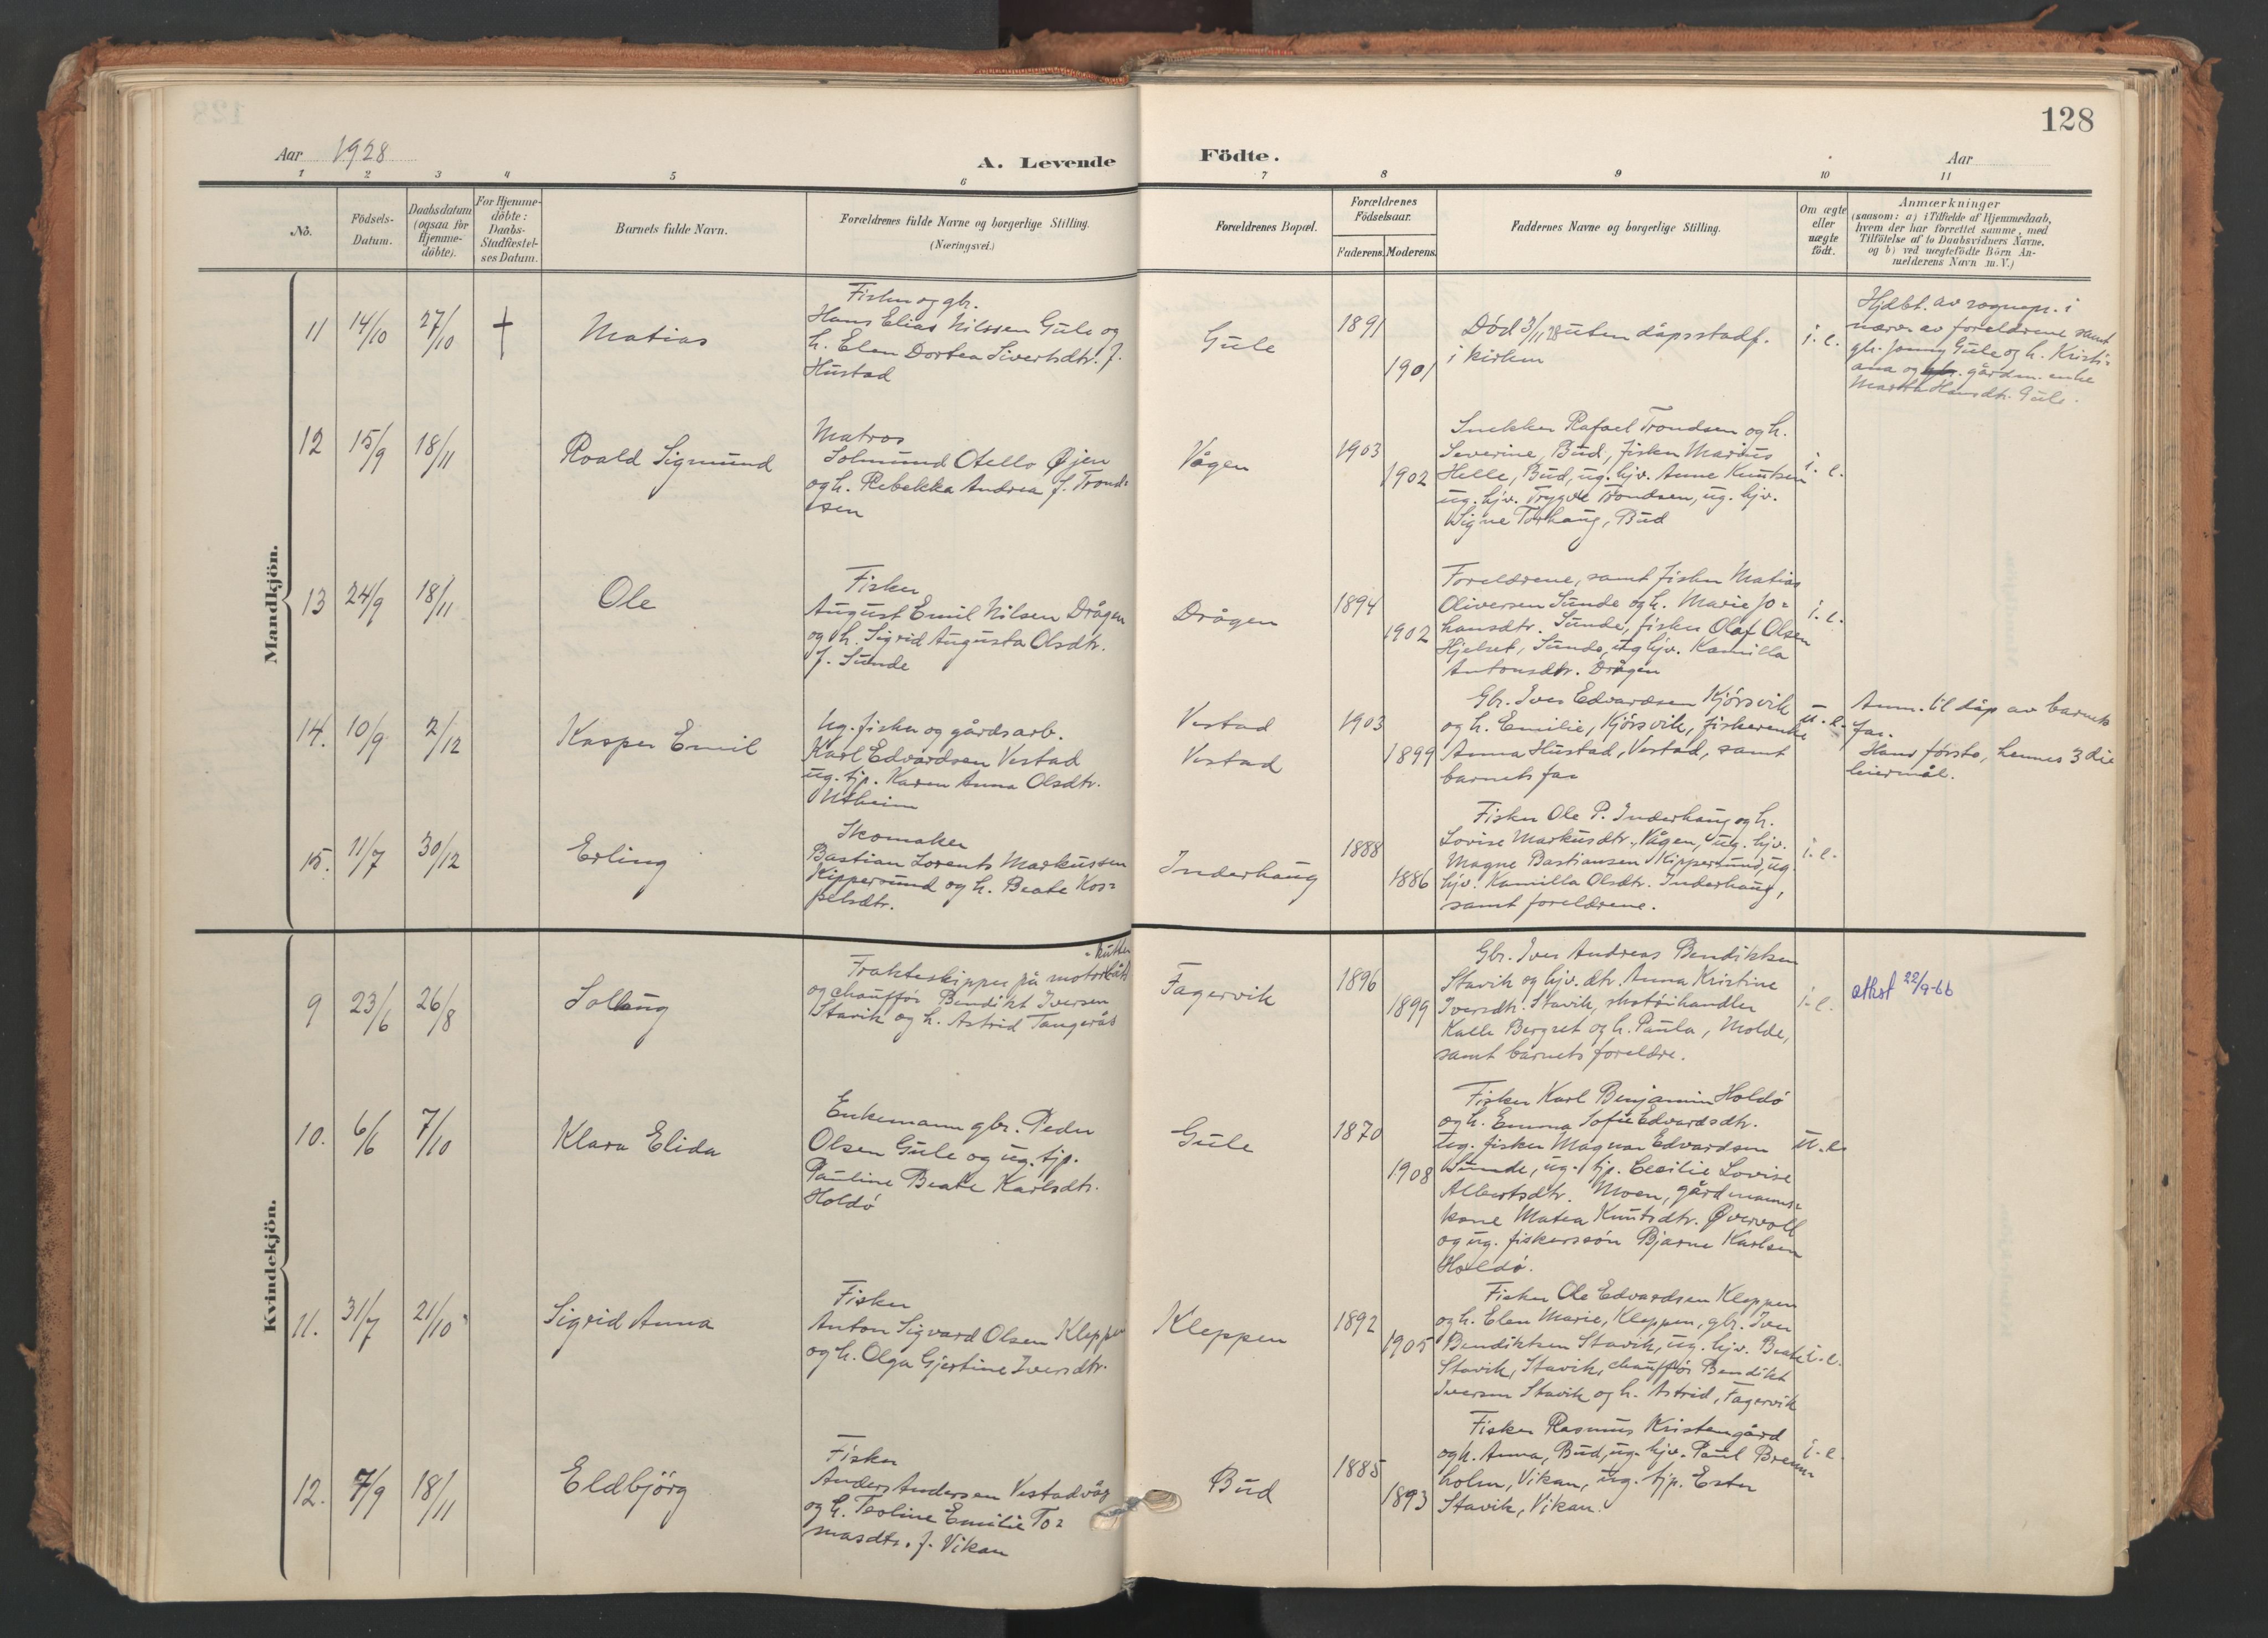 128
Aar 1928
A. Levende
Födte.
Aar
1 2 3 4 5 6 7 8 9 10 11
No.
Födsels-
Datum.
Daabsdatum
(ogsaa for
Hjemme-
döbte).
For Hjemme-
döbte:
Daabs-
Stadfæstel-
ses Datum.
Barnets fulde Navn.
Forældrenes fulde Navne og borgerlige Stilling.
(Næringsvei.)
Forældrenes Bopæl.
Forældrenes
Födselsaar.
Faderens. Moderens.
Faddernes Navne og borgerlige Stilling.
Om ægte
eller
uægte
födt.
Anmærkninger
(saasom: a) i Tilfælde af Hjemmedaab,
hvem der har forrettet samme, med
Tilföielse af to Daabsvidners Navne,
og b) ved uægtefödte Börn An-
melderens Navn m.V.)
Mandkjön.
11 14/10 27/10 †
Matias
Fisker og gbr.
Hans Elias Nilssen Gule og
h. Elen Dortea Sivertsdtr. f.
Hustad
Gule
1891
1901
Død 3/11 28 uten dåpsstadf.
i kirken
i. e.
Hjdbt. av sognepr. i
nærv. av foreldrene samt
gbr. Jonny Gule og h. Kristi=
ana og gårdm. enke
Marta Hansdtr. Gule.
12 15/9 18/11
Roald Sigmund
Matros
Solmund Otello Øjen
og h. Rebekka Andrea f. Trond=
sen
Vågen
1903
1902
Snekker Rafael Trondsen og h.
Severine, Bud, fisker Marius
Helle, Bud, ug. hjv. Anne Knutsen
ug. hjv. Trygve Trondsen, ug. hjv.
Signe Torhaug, Bud
i. e.
13 24/9 18/11
Ole
Fisker
August Emil Nilsen Drågen
og h. Sigrid Augusta Olsdtr.
f. Sunde
Drågen
1894
1902
Foreldrene, samt fisker Matias
Oliversen Sunde og h. Marie Jo=
hansdtr. Sunde, fisker Olaf Olsen
Hjelset, Sunde, ug hjv. Kamilla
Antonsdtr. Drågen
i. e.
14. 10/9 2/12
Kasper Emil
Ug. fisker og gårdsarb.
Karl Edvardsen Vestad
ug. tjp. Karen Anna Olsdtr.
Utheim
Vestad
Vestad
1903
1899
Gbr. Iver Edvardsen Kjörsvik
og h. Emilie, Kjörsvik, fiskerenke
Anna Hustad, Vestad, samt
barnets far
u. e.
Anm. til dåp av barnets
far.
Hans første, hennes 3die
leiermål.
15. 11/7 30/12
Erling
Skomaker
Bastian Lorents Markussen
Kippersund og h. Beate Kos=
pelsdtr.
Inderhaug
1888
1886
Fisker Ole P. Inderhaug og h.
Lovise Markusdtr. Vågen, ug. hjv.
Magne Bastiansen Kippersund, ug.
hjv. Kamilla Olsdtr. Inderhaug,
samt foreldrene.
i. e.
Kvindekjön.
9 23/6 26/8
Sollaug
kutter
Frakteskipper på motorbåt
og chauffør Bendikt Iversen
Stavik og h. Astrid Tangerås
Fagervik
1896
1899
Gbr. Iver Andreas Bendiktsen
Stavik og hjv. dtr. Anna Kristine
Iversdtr. Stavik, skotöihandler
Kalle Bergset og h. Paula, Molde,
samt barnets foreldre.
i. e.
attest 22/9-66
10. 6/6 7/10
Klara Elida
Enkemann gbr. Peder
Olsen Gule og ug. tjp.
Pauline Beate Karlsdtr.
Holdö
Gule
1870
1908
Fisker Karl Benjamin Holdö
og h. Emma Sofie Edvardsdtr.
ug. fisker Magnar Edvardsen
Sunde, ug. tjp. Cecilie Lovise
Albertsdtr. Moen, gårdmanns=
kone Matea Knutsdtr. Øvervoll
og ug. fiskersön Bjarne Karlsen
Holdö.
u. e.
11. 31/7 21/10
Sigrid Anna
Fisker
Anton Sigvard Olsen Kleppen
og h. Olga Gjertine Iversdtr.
Kleppen
1892
1905
Fisker Ole Edvardsen Kleppen
og h. Elen Marie, Kleppen, gbr. Iver
Bendiktsen Stavik, ug. hjv. Beate
Stavik, Stavik, chauffør Bendikt
Iversen Stavik og h. Astrid, Fagervik
i. e.
12. 7/9 18/11
Eldbjörg
Fisker
Anders Andersen Vestadvåg
og h. Teoline Emilie To=
masdtr. f. Vikan
Bud
1885
1893
Fisker Rasmus Kristengård
og h. Anna, Bud, ug. hjv. Paul Brenn=
holm, Vikan, ug. tjp. Ester
Stavik, Vikan.
i. e.